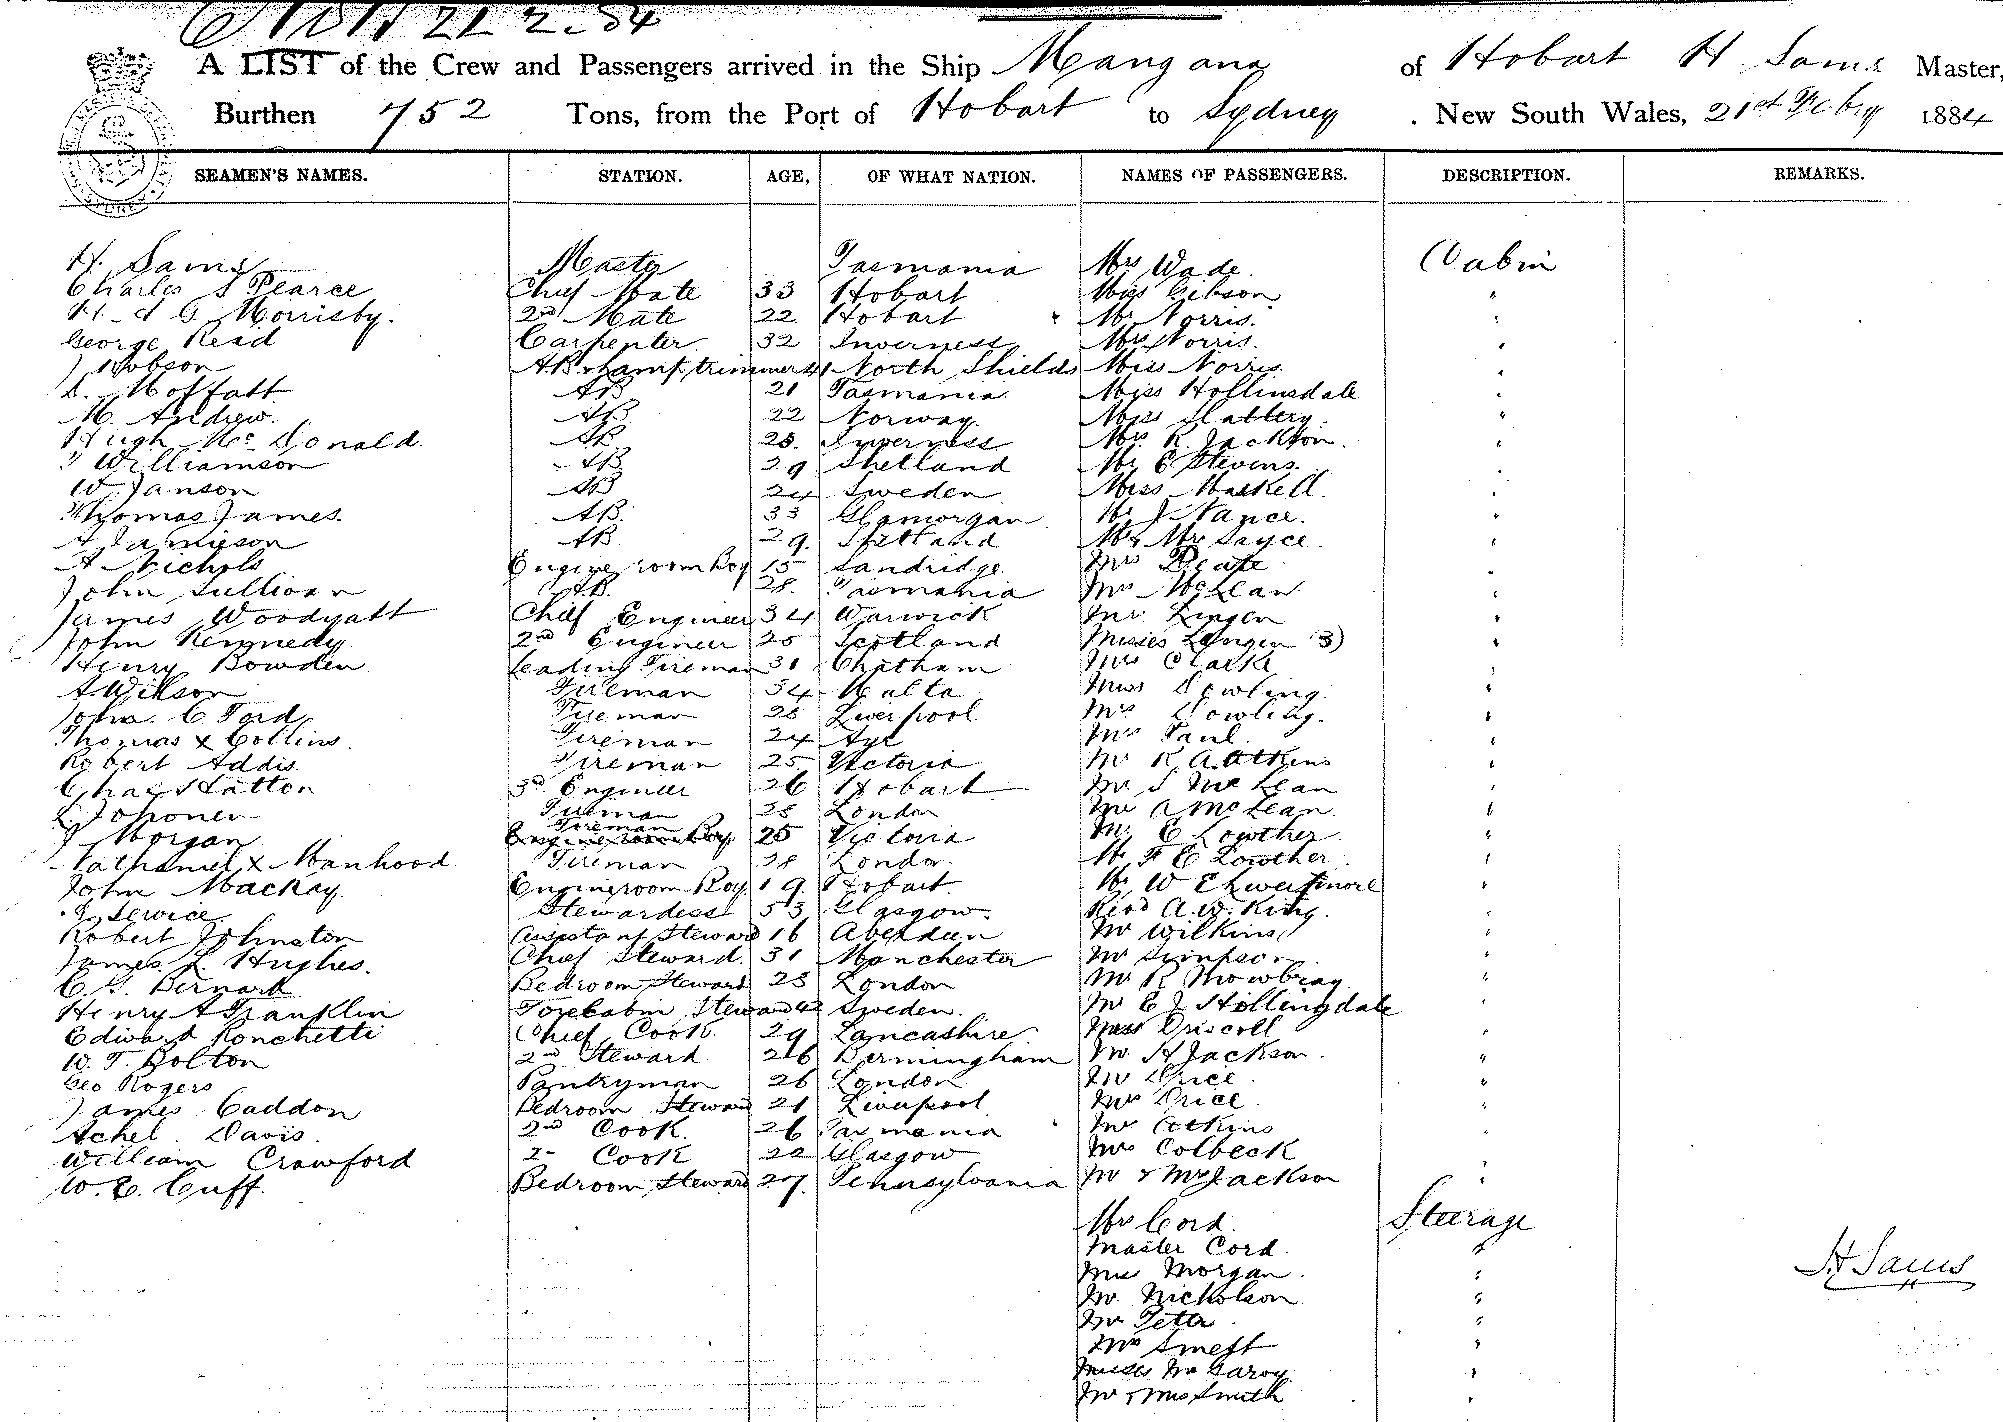 21.2.84
A LIST of the Crew and Passengers arrived in the Ship Mangana of Hobart H Sams Master,
Burthen 752 Tons, from the Port of Hobart to Sydney . New South Wales, 21st Febry 1884
SEAMEN'S NAMES. STATION. AGE, OF WHAT NATION. NAMES OF PASSENGERS. DESCRIPTION. REMARKS.
H. Sams Master Tasmania Mrs Wade. Cabin
Charles S Pearce Chief Mate 33 Hobart Miss Gibson "
H. d G Morrisby. 2nd Mate 22 Hobart Mr Norris. "
George Read Carpenter 32 Inverness Mrs Norris. "
J Hobson AB & lamp trimmer 41 North Shields Miss Norris "
L. Moffatt AB 21 Tasmania Miss Hollinsdale "
M. Andrew. AB 22 Norway. Miss Slattery. "
Hugh Mc Donald. AB 28. Inverness Mrs. R. Jackson. "
J Williamson AB 29 Shetland Mr C Stevens. "
W. Janson AB 24 Sweden Miss Maskell. "
Thomas James. AB. 33 Glamorgan Mr J. Nance. "
A Jamieson AB 29. Shetland Mr & Mrs Sayce. "
A Nichols Engine room Boy 15 Sandridge Mrs Peate "
John Sullivan AB. 28. Tasmania Mrs McLean "
James Woodyatt Chief Engineer 34 Warwick Mr. Lingen "
John Kennedy 2nd Engineer 25 Scotland Misses Lingen (3) "
Henry Bowden Leading Fireman 31 Chatham Mrs Clark "
A Wilson Fireman 34 Malta Miss Dowling. "
John. C Ford Fireman 28 Liverpool Mrs Dowling. "
Thomas x Collins. Fireman 24 Ayr Mrs Paul "
Robert Addis. Fireman 25 Victoria Mr R. A. Atkins "
Chas Hatton 3rd Engineer 26 Hobart Mr S Mc Lean "
Fireman 38 London Mr A McLean "
J Morgan Fireman 25 Victoria Mr E Lowther. "
Nathaniel x Manhood Fireman 38 London Mr F E Lowther. "
John Mackay Engineroom Boy 19 Hobart. Mr W "
Service Stewardess 53 Glasgow. Revd A. W. King. "
Robert Johnston Assistant Steward 16 Aberdeen Mr Wilkins "
James L Hughes. Chief Steward. 31 Manchester Mr Simpson "
C. G. Bernard Bedroom Steward 23 London Mr R Mowbray "
Henry A Franklin Forecabin Steward 42 Sweden. Mr E J Hollingdale "
Edward Ronchetti Chief Cook. 29 Lancashire Miss Driscoll "
W. T. Bolton 2nd Steward 26 Birmingham Mr H Jackson. "
Geo Rogers Pantryman 26 London Mr Price "
James Caddon Bedroom Steward 21 Liverpool Mrs Price. "
Achel. Davis. 2nd Cook. 26 Tasmania Mr "
William Crawford 2 Cook 22 Glasgow Mrs Colbeck "
W. E. Cuff. Bedroom Steward 27. Pennsylvania Mr & Mrs Jackson "
Mrs Cord. Steerage
Master Cord. "
Morgan. "
Mr. Nicholson "
Mr "
Mrs "
"
Mr & Mrs Smith "
H Sams